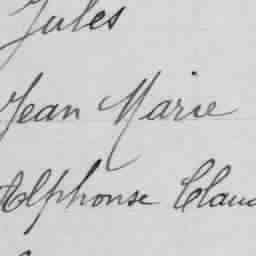 Jules
Jean Marie
Alphonse Claud